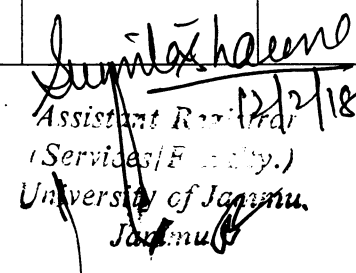 12/2/18
Assistant Registrar
(Services/F...ty.)
University of Jammu.
Jammu